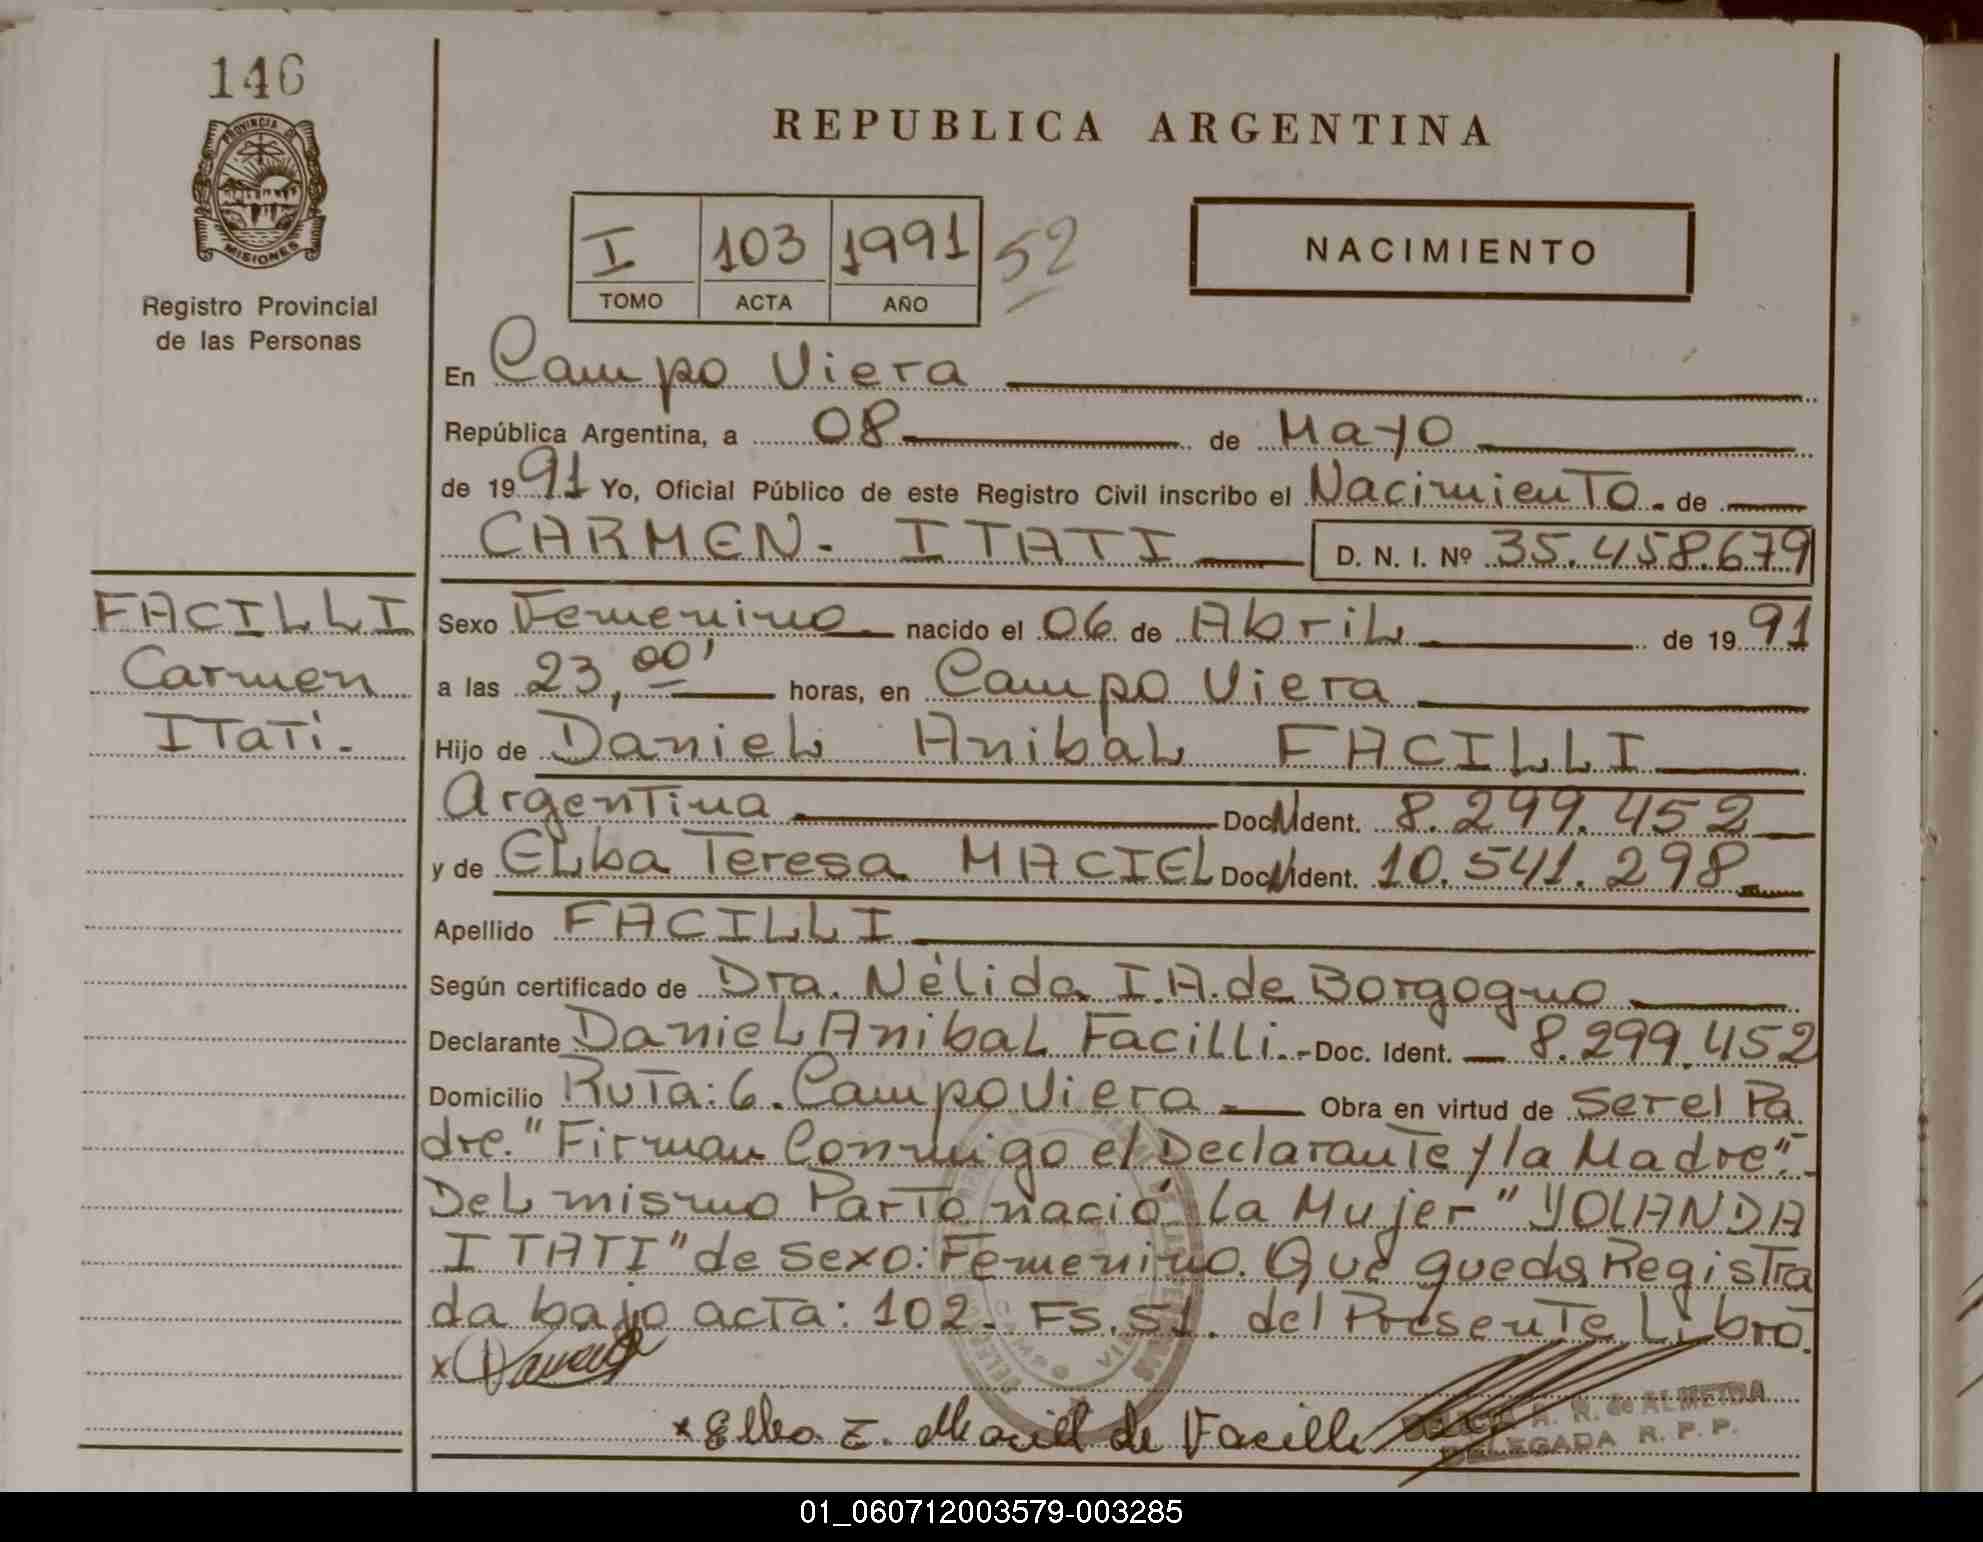 146
PROVINCIA DE
MISIONES
Registro Provincial
de las Personas
REPUBLICA ARGENTINA
I 103 1991 52
TOMO ACTA AÑO
NACIMIENTO
En Campo Viera
República Argentina, a 08 de Mayo
de 1991 Yo, Oficial Público de este Registro Civil inscribo el Nacimiento. de
CARMEN - ITATI D. N. I. Nº 35.458.679
FACILLI
Carmen
ITati.-
Sexo Femenino nacido el 06 de Abril de 1991
a las 23,00' horas, en Campo Viera
Hijo de Daniel Anibal FACILLI
Argentina Doc. Ident. 8.299.452
y de Elba Teresa MACIEL Doc. Ident. 10.541.298
Apellido FACILLI
Según certificado de Dra. Nélida I.A. de Borgogno
Declarante Daniel Anibal Facilli.- Doc. Ident. 8.299.452
Domicilio Ruta: 6. Campo Viera Obra en virtud de Ser el Pa
dre. "Firman Conmigo el Declarante y la Madre".-
Del mismo Parto nació la Mujer "YOLANDA
ITATI" de Sexo: Femenino. Que queda Registra
da bajo acta: 102 - FS. 51. del Presente Libro.
x
x Elba T. Maciel de Facilli
R. de ALMEIDA
DELEGADA R. P. P.
01_060712003579-003285